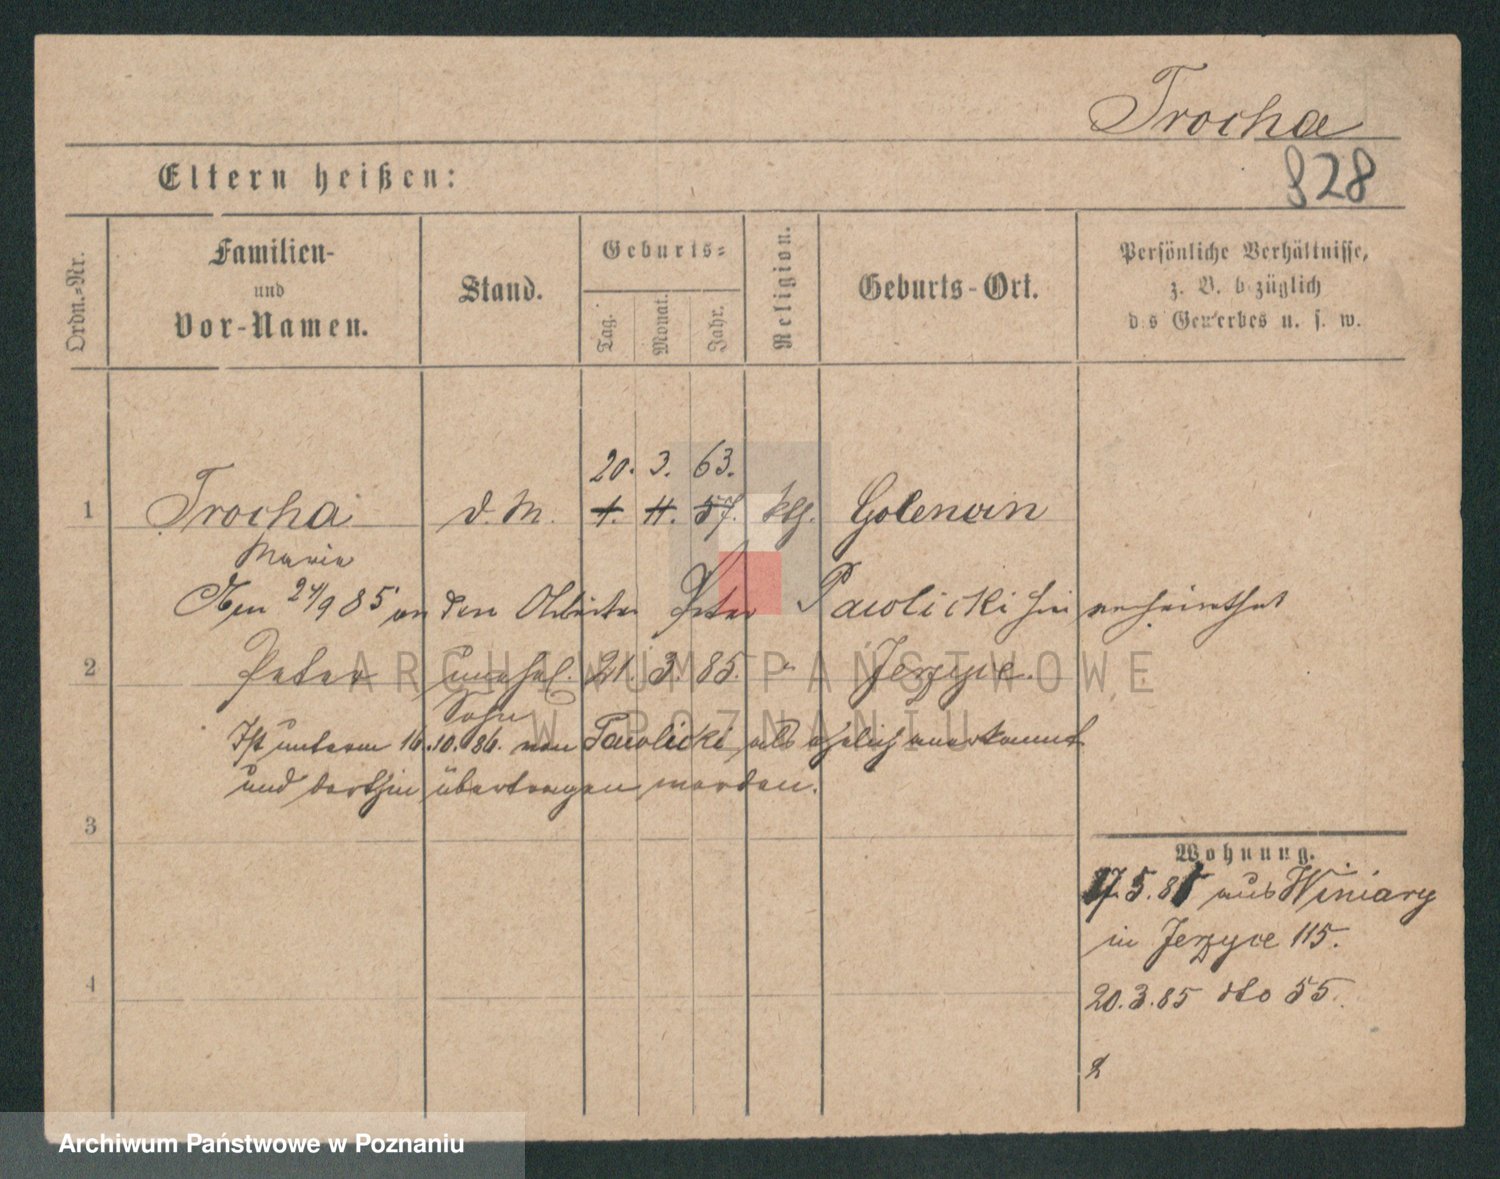 Trocha
828
Eltern heißen:
Ordn.-Nr.
Familien-
und
Vor-Namen.
Stand.
Geburts-
Tag.
Monat.
Jahr.
Religion.
Geburts-Ort.
Persönliche Verhältnisse,
z. B. bezüglich
des Gewerbes u. s. w.
20. 3. 63.
1 Trocha d. M. 1. 11. 57. kth. Golencin
Marie
Am 24/9 85 an den Arbeiter Peter Pawlicki hier verheirathet
2 Peter unehel. 21. 3. 85. " Jerzyce.
Sohn
Ist unterm 16.10.86. von Pawlicki als ehelich anerkannt
und dorthin übertragen worden.
3
4
Wohnung.
5.8 aus Winiary
in Jerzyce 115.
20.3.85 dto 55.
2
ARCHIWUM PAŃSTWOWE
W POZNANIU
Archiwum Państwowe w Poznaniu